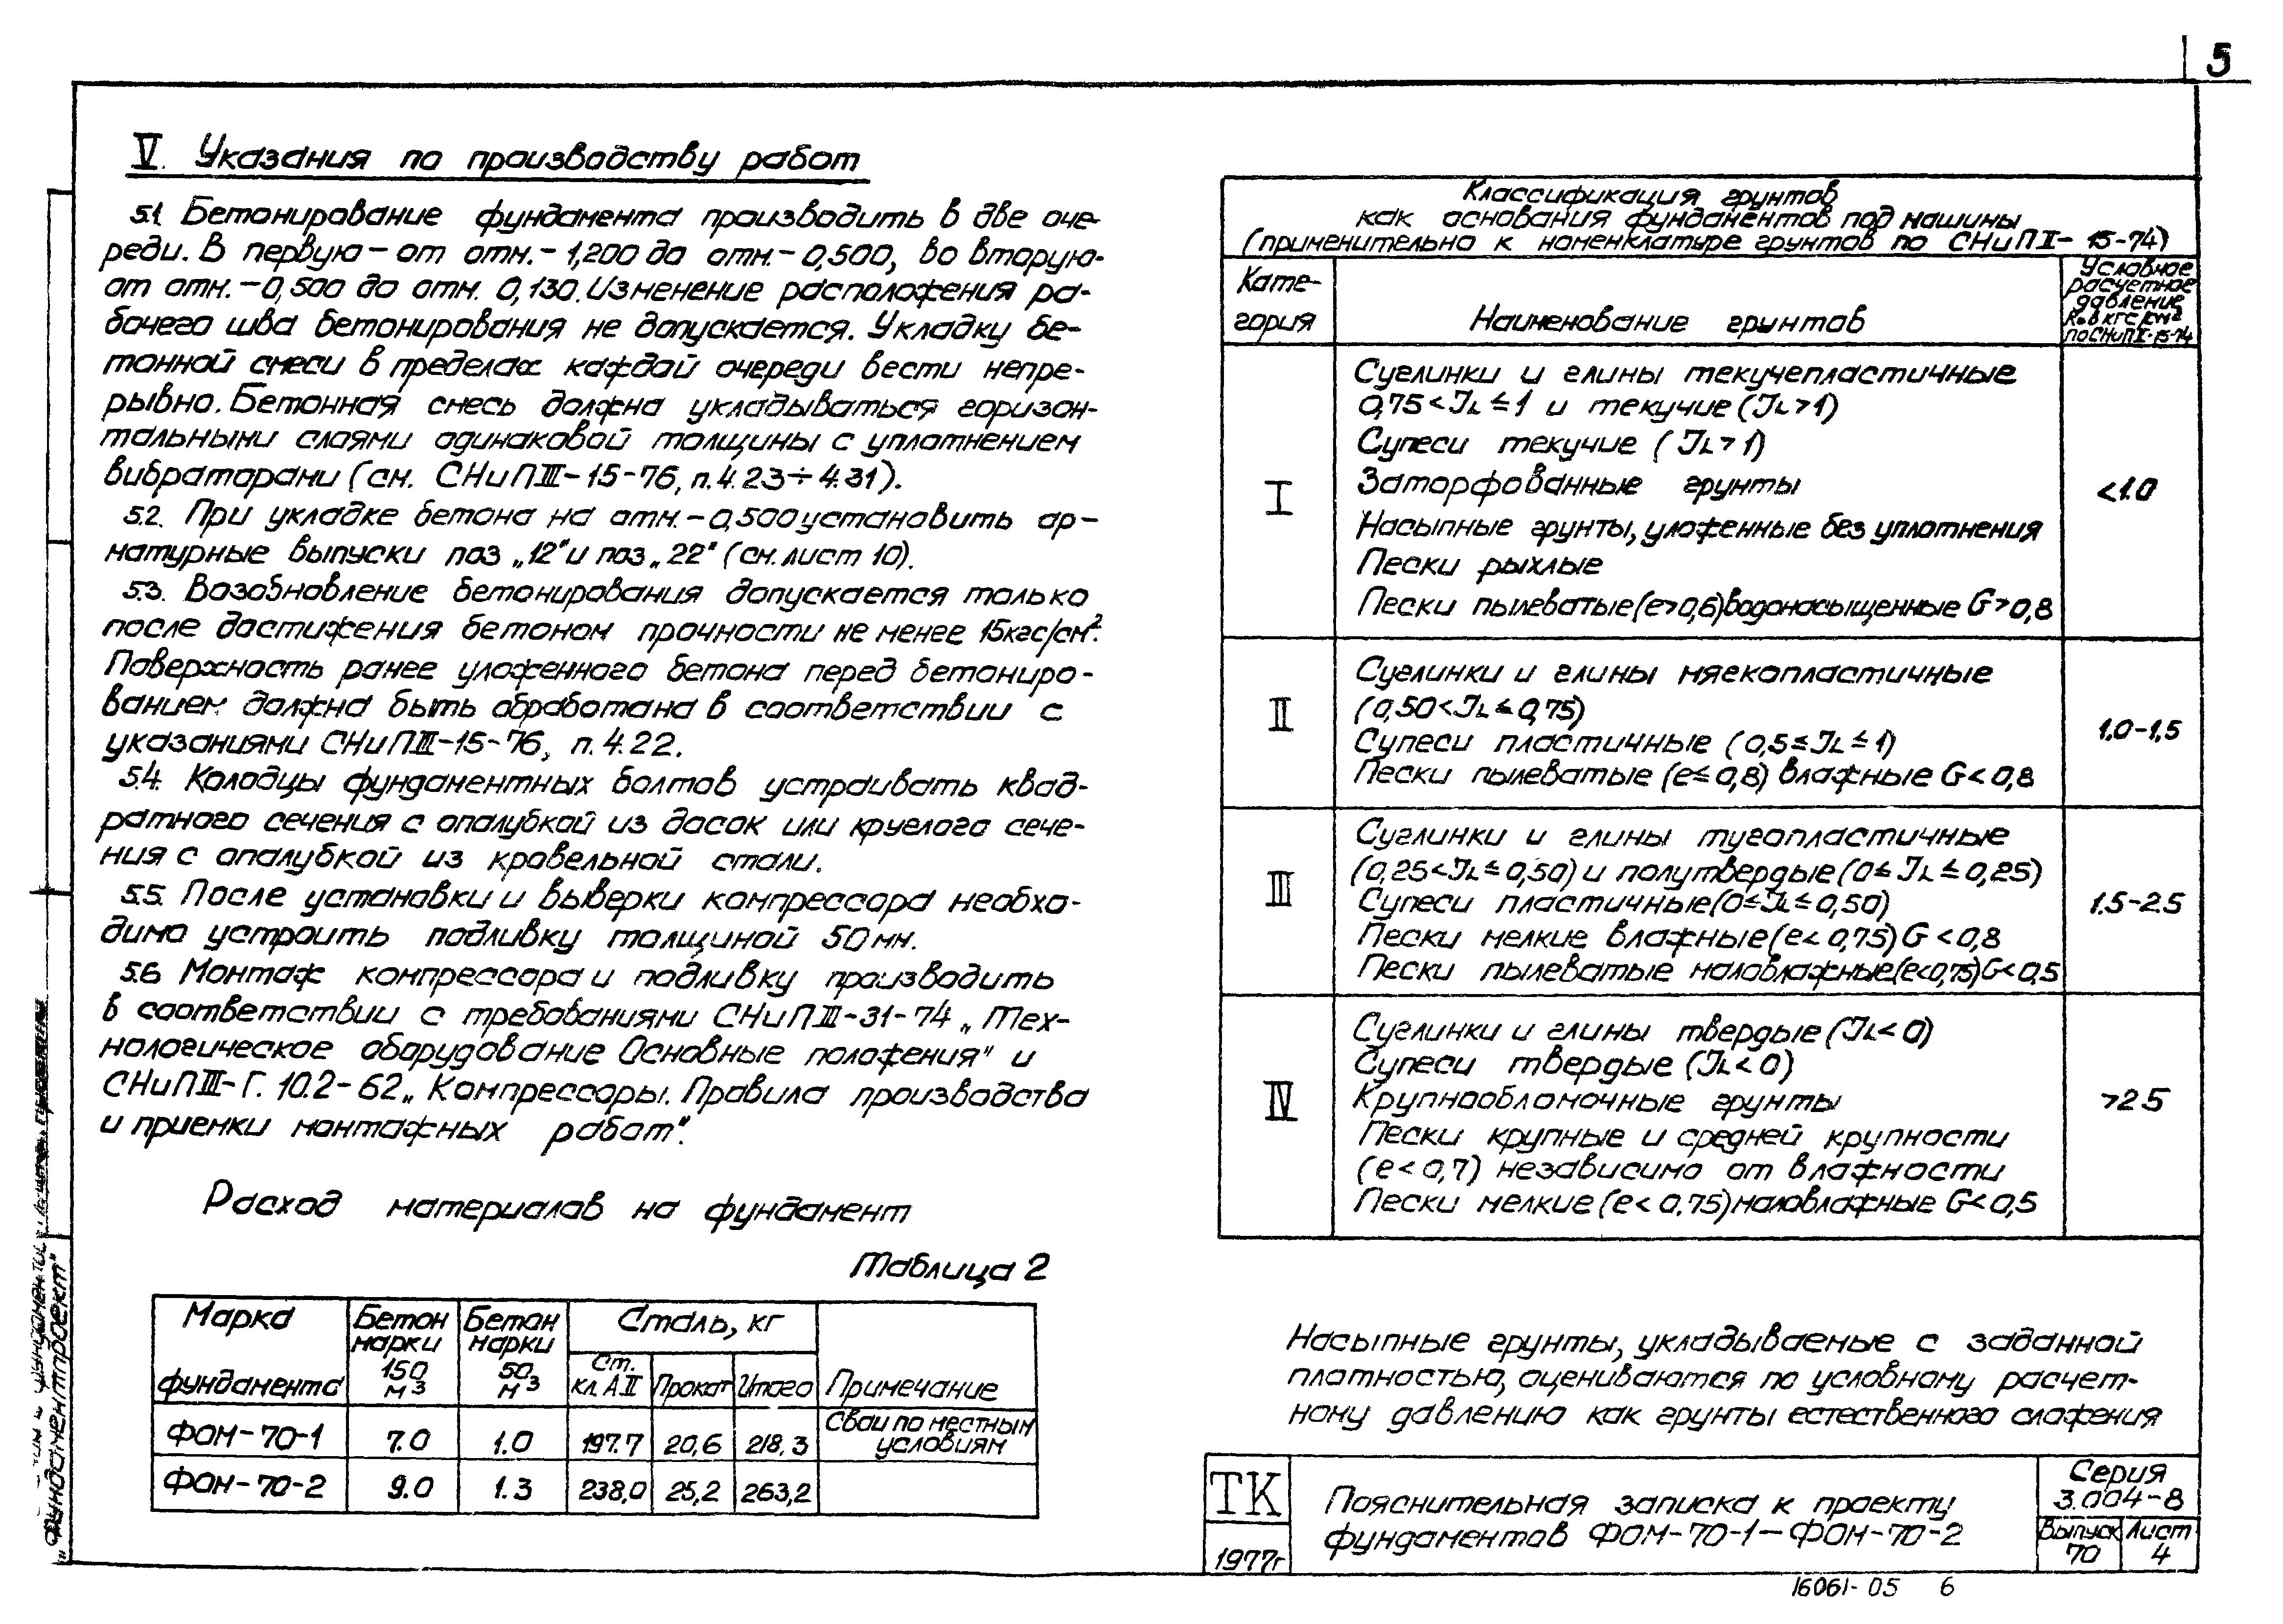 5
V. Указания по производству работ
5.1. Бетонирование фундамента производить в две оче-
реди. В первую – от отм. – 1,200 до отм. – 0,500, во вторую-
от отм. – 0,500 до отм. 0,130. Изменение расположения ра-
бочего шва бетонирования не допускается. Укладку бе-
тонной смеси в пределах каждой очереди вести непре-
рывно. Бетонная смесь должна укладываться горизон-
тальными слоями одинаковой толщины с уплотнением
вибраторами (см. СНиП III-15-76, п.4.23÷4.31).
5.2. При укладке бетона на отм. – 0,500 установить ар-
матурные выпуски поз „12" и поз „22" (см. лист 10).
5.3. Возобновление бетонирования допускается только
после достижения бетоном прочности не менее 15кгс/см².
Поверхность ранее уложенного бетона перед бетониро-
ванием должна быть обработана в соответствии с
указаниями СНиП III-15-76, п.4.22.
5.4. Колодцы фундаментных болтов устраивать квад-
ратного сечения с опалубкой из досок или круглого сече-
ния с опалубкой из кровельной стали.
5.5. После установки и выверки компрессора необхо-
димо устроить подливку толщиной 50 мм.
5.6 Монтаж компрессора и подливку производить
в соответствии с требованиями СНиП III-31-74 „Тех-
нологическое оборудование Основные положения" и
СНиП III-Г. 10.2-62 „Компрессоры. Правила производства
и приемки монтажных работ".
Расход материалов на фундамент
Таблица 2
Марка фундамента | Бетон марки 150 м³ | Бетон марки 50 м³ | Сталь, кг | Примечание
Ст. кл. АII | Прокат | Итого
ФОМ-70-1 | 7.0 | 1.0 | 197.7 | 20,6 | 218,3 | Сваи по местным условиям
ФОМ-70-2 | 9.0 | 1.3 | 238,0 | 25,2 | 263,2
Классификация грунтов
как основания фундаментов под машины
(применительно к номенклатуре грунтов по СНиП II-15-74)
Кате-
гория
Наименование грунтов
Условное
расчетное
давление
R₀ в кгс/см²
по СНиП II-15-74
I
Суглинки и глины текучепластичные
0,75 < JL ≤ 1 и текучие (JL > 1)
Супеси текучие (JL > 1)
Заторфованные грунты
Насыпные грунты, уложенные без уплотнения
Пески рыхлые
Пески пылеватые (e > 0,6) водонасыщенные G > 0,8
<1.0
II
Суглинки и глины мягкопластичные
(0,50 < JL ≤ 0,75)
Супеси пластичные (0,5 ≤ JL ≤ 1)
Пески пылеватые (e ≤ 0,8) влажные G < 0,8
1.0-1,5
III
Суглинки и глины тугопластичные
(0,25 < JL ≤ 0,50) и полутвердые (0 ≤ JL ≤ 0,25)
Супеси пластичные (0 ≤ JL ≤ 0,50)
Пески мелкие влажные (e < 0,75) G < 0,8
Пески пылеватые маловлажные (e < 0,75) G < 0,5
1.5-2.5
IV
Суглинки и глины твердые (JL < 0)
Супеси твердые (JL < 0)
Крупнообломочные грунты
Пески крупные и средней крупности
(e < 0,7) независимо от влажности
Пески мелкие (e < 0.75) маловлажные G < 0,5
>2.5
Насыпные грунты, укладываемые с заданной
плотностью, оцениваются по условному расчет-
ному давлению как грунты естественного сложения
ТК
1977г
Пояснительная записка к проекту
фундаментов ФОМ-70-1 – ФОМ-70-2
Серия
3.004-8
Выпуск
70
Лист
4
16061-05 6
„Фундаментпроект"